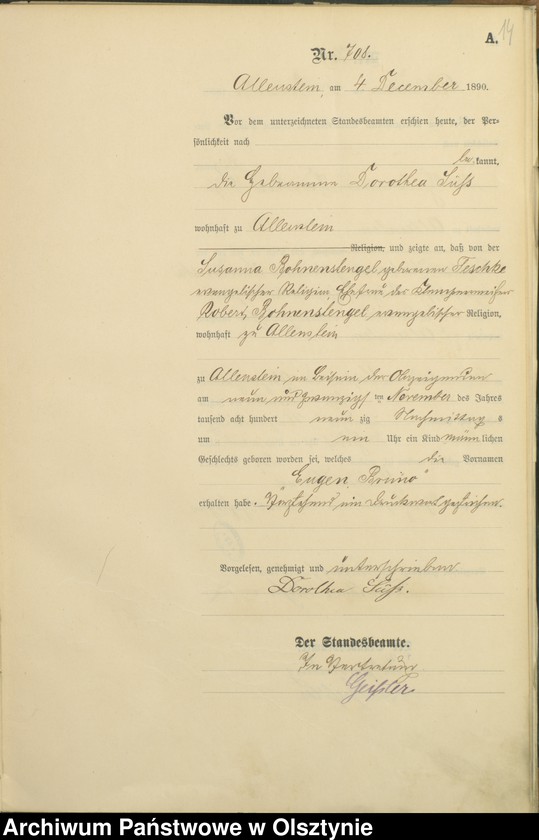 14
A.
Nr. 708.
Allenstein, am 4 December 1890.
Vor dem unterzeichneten Standesbeamten erschien heute, der Per-
sönlichkeit nach
bekannt,
die Hebeamme Dorothea Süss
wohnhaft zu Allenstein
Religion, und zeigte an, daß von der
Susanna Bohnenstengel geborenen Teschke
evangelischer Religion, Ehefrau des Klempnermeisters
Robert Bohnenstengel evangelischer Religion,
wohnhaft zu Allenstein
zu Allenstein im Beisein der Anzeigenden
am neun und zwanzigsten November des Jahres
tausend acht hundert neunzig Nachmittags
um ein Uhr ein Kind männlichen
Geschlechts geboren worden sei, welches die Vornamen
„Eugen Bruno“
erhalten habe. Vorstehend ein Druckwort gestrichen.
Vorgelesen, genehmigt und unterschrieben
Dorothea Süss.
Der Standesbeamte.
In Vertretung
Geißler
Archiwum Państwowe w Olsztynie